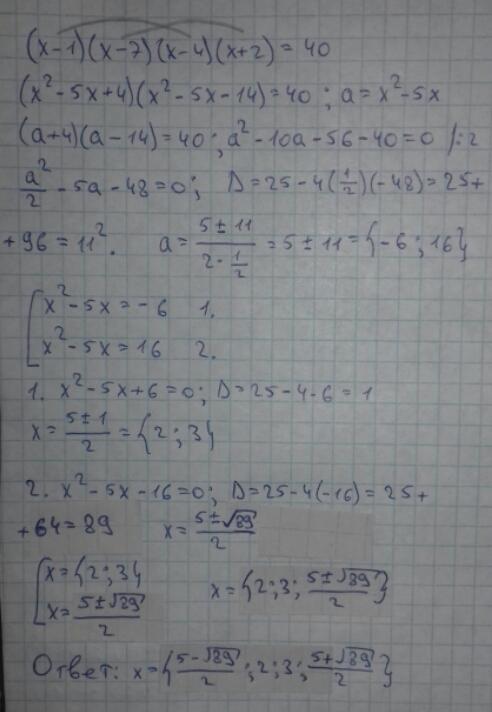 (x-1)(x-7)(x-4)(x+2)=40
(x²-5x+4)(x²-5x-14)=40; a=x²-5x
(a+4)(a-14)=40; a²-10a-56-40=0 /:2
a²/2 -5a-48=0; D=25-4(1/2)(-48)=25+
+96=11². a=(5±11)/(2·1/2)=5±11={-6;16}
[x²-5x=-6 1.
x²-5x=16 2.
1. x²-5x+6=0; D=25-4·6=1
x=(5±1)/2={2;3}
2. x²-5x-16=0; D=25-4(-16)=25+
+64=89 x=(5±√89)/2
[x={2;3}
x=(5±√89)/2 x={2;3;(5±√89)/2}
Ответ: x={(5-√89)/2;2;3;(5+√89)/2}